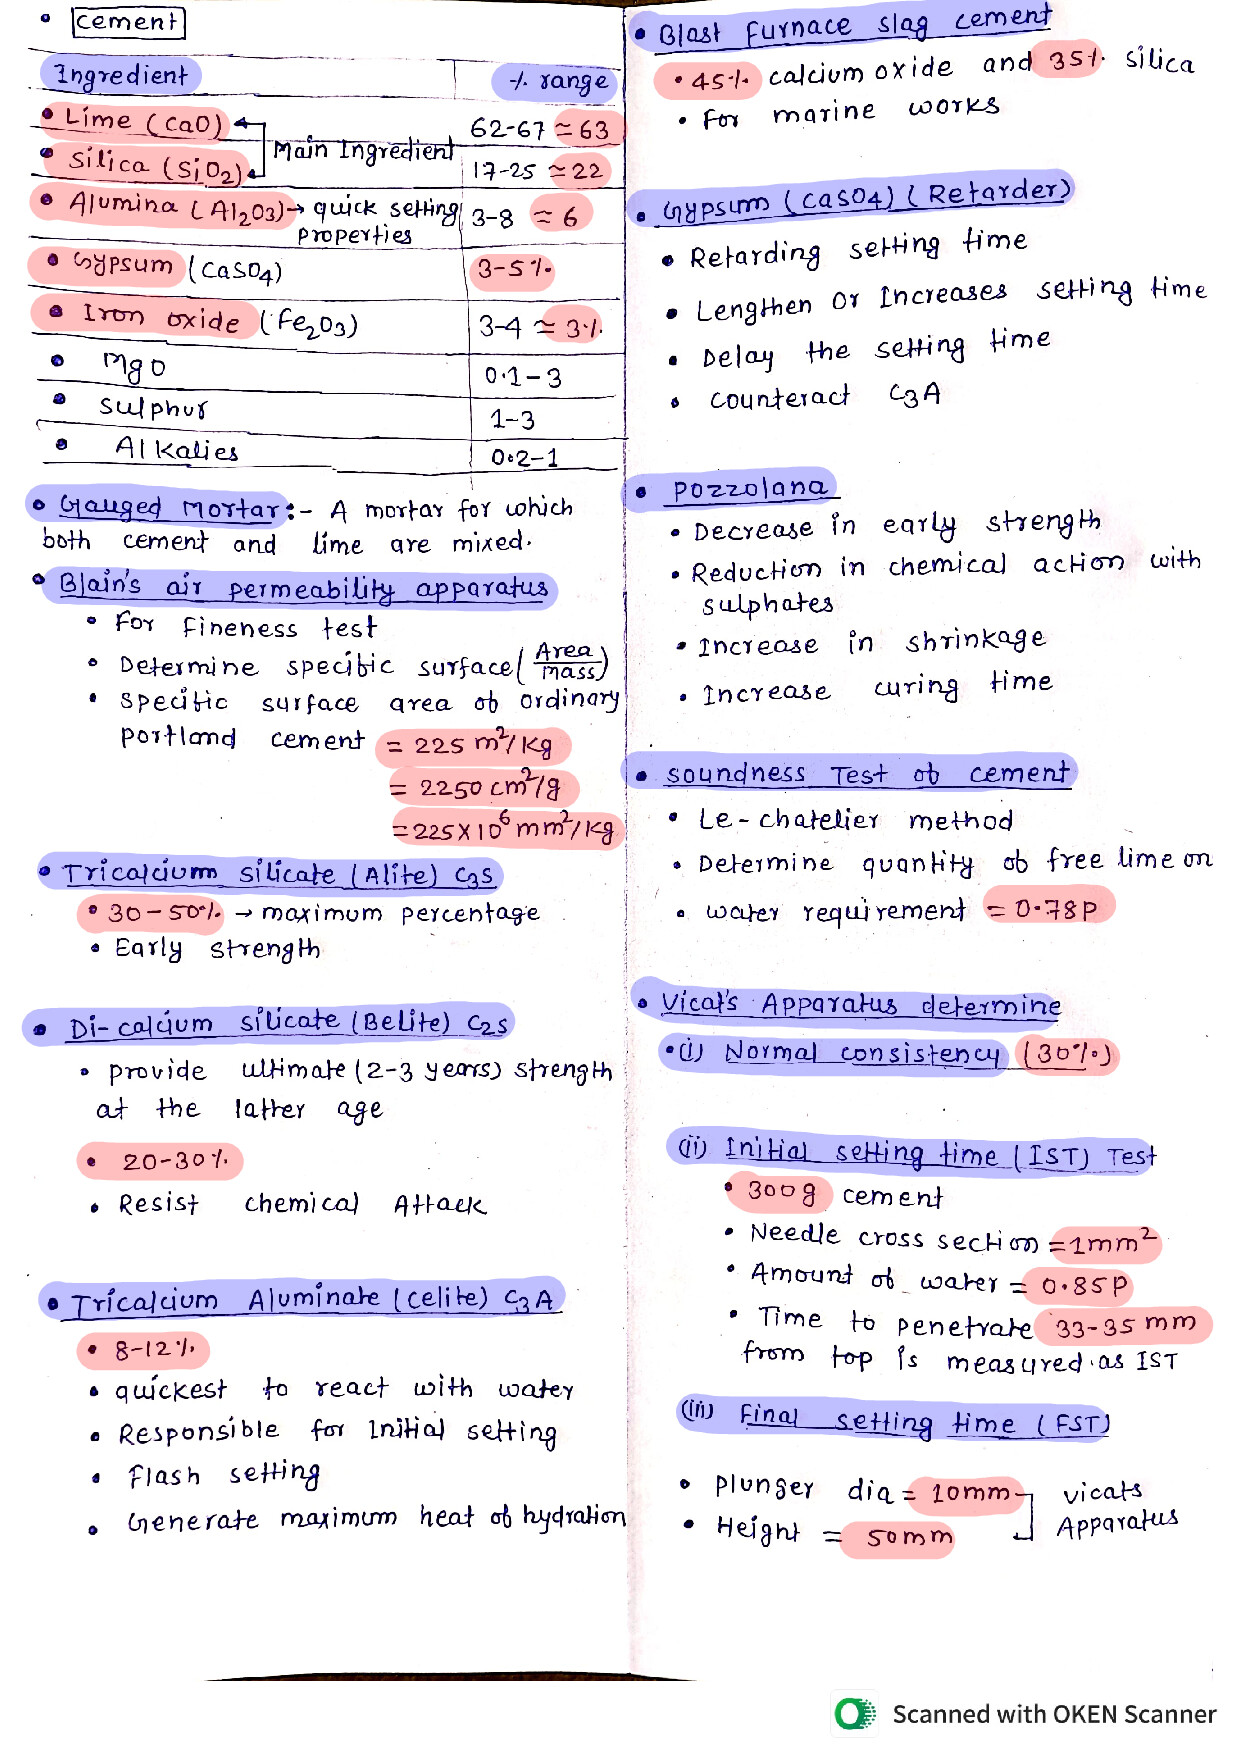 • Cement
Ingredient ٪ range
• Lime (CaO) 62-67 ≃ 63
Main Ingredient
• Silica (SiO2) 17-25 ≃ 22
• Alumina (Al2O3) → quick setting 3-8 ≃ 6
properties
• Gypsum (CaSO4) 3-5٪
• Iron oxide (Fe2O3) 3-4 ≃ 3٪
• MgO 0.1-3
• Sulphur 1-3
• Alkalies 0.2-1
• Gauged Mortar:- A mortar for which
both cement and lime are mixed.
• Blain's air permeability apparatus
• For Fineness test
• Determine specific surface (Area/mass)
• Specific surface area of ordinary
portland cement = 225 m²/kg
= 2250 cm²/g
= 225×10⁶ mm²/kg
• Tricalcium silicate (Alite) C3S
• 30-50٪ → maximum percentage
• Early strength
• Di-calcium silicate (Belite) C2S
• provide ultimate (2-3 years) strength
at the latter age
• 20-30٪
• Resist chemical Attack
• Tricalcium Aluminate (celite) C3A
• 8-12٪
• quickest to react with water
• Responsible for Initial setting
• Flash setting
• Generate maximum heat of hydration
• Blast Furnace slag cement
• 45٪ calcium oxide and 35٪ silica
• For marine works
• Gypsum (CaSO4) (Retarder)
• Retarding setting time
• Lengthen or Increases setting time
• Delay the setting time
• counteract C3A
• Pozzolana
• Decrease in early strength
• Reduction in chemical action with
sulphates
• Increase in shrinkage
• Increase curing time
• Soundness Test of cement
• Le-chatelier method
• Determine quantity of free lime on
• water requirement = 0.78P
• Vicat's Apparatus determine
• (i) Normal consistency (30٪)
(ii) Initial setting time (IST) Test
• 300g cement
• Needle cross section = 1mm²
• Amount of water = 0.85P
• Time to penetrate 33-35 mm
from top is measured as IST
(iii) Final setting time (FST)
• Plunger dia = 10mm vicats
• Height = 50mm Apparatus
Scanned with OKEN Scanner